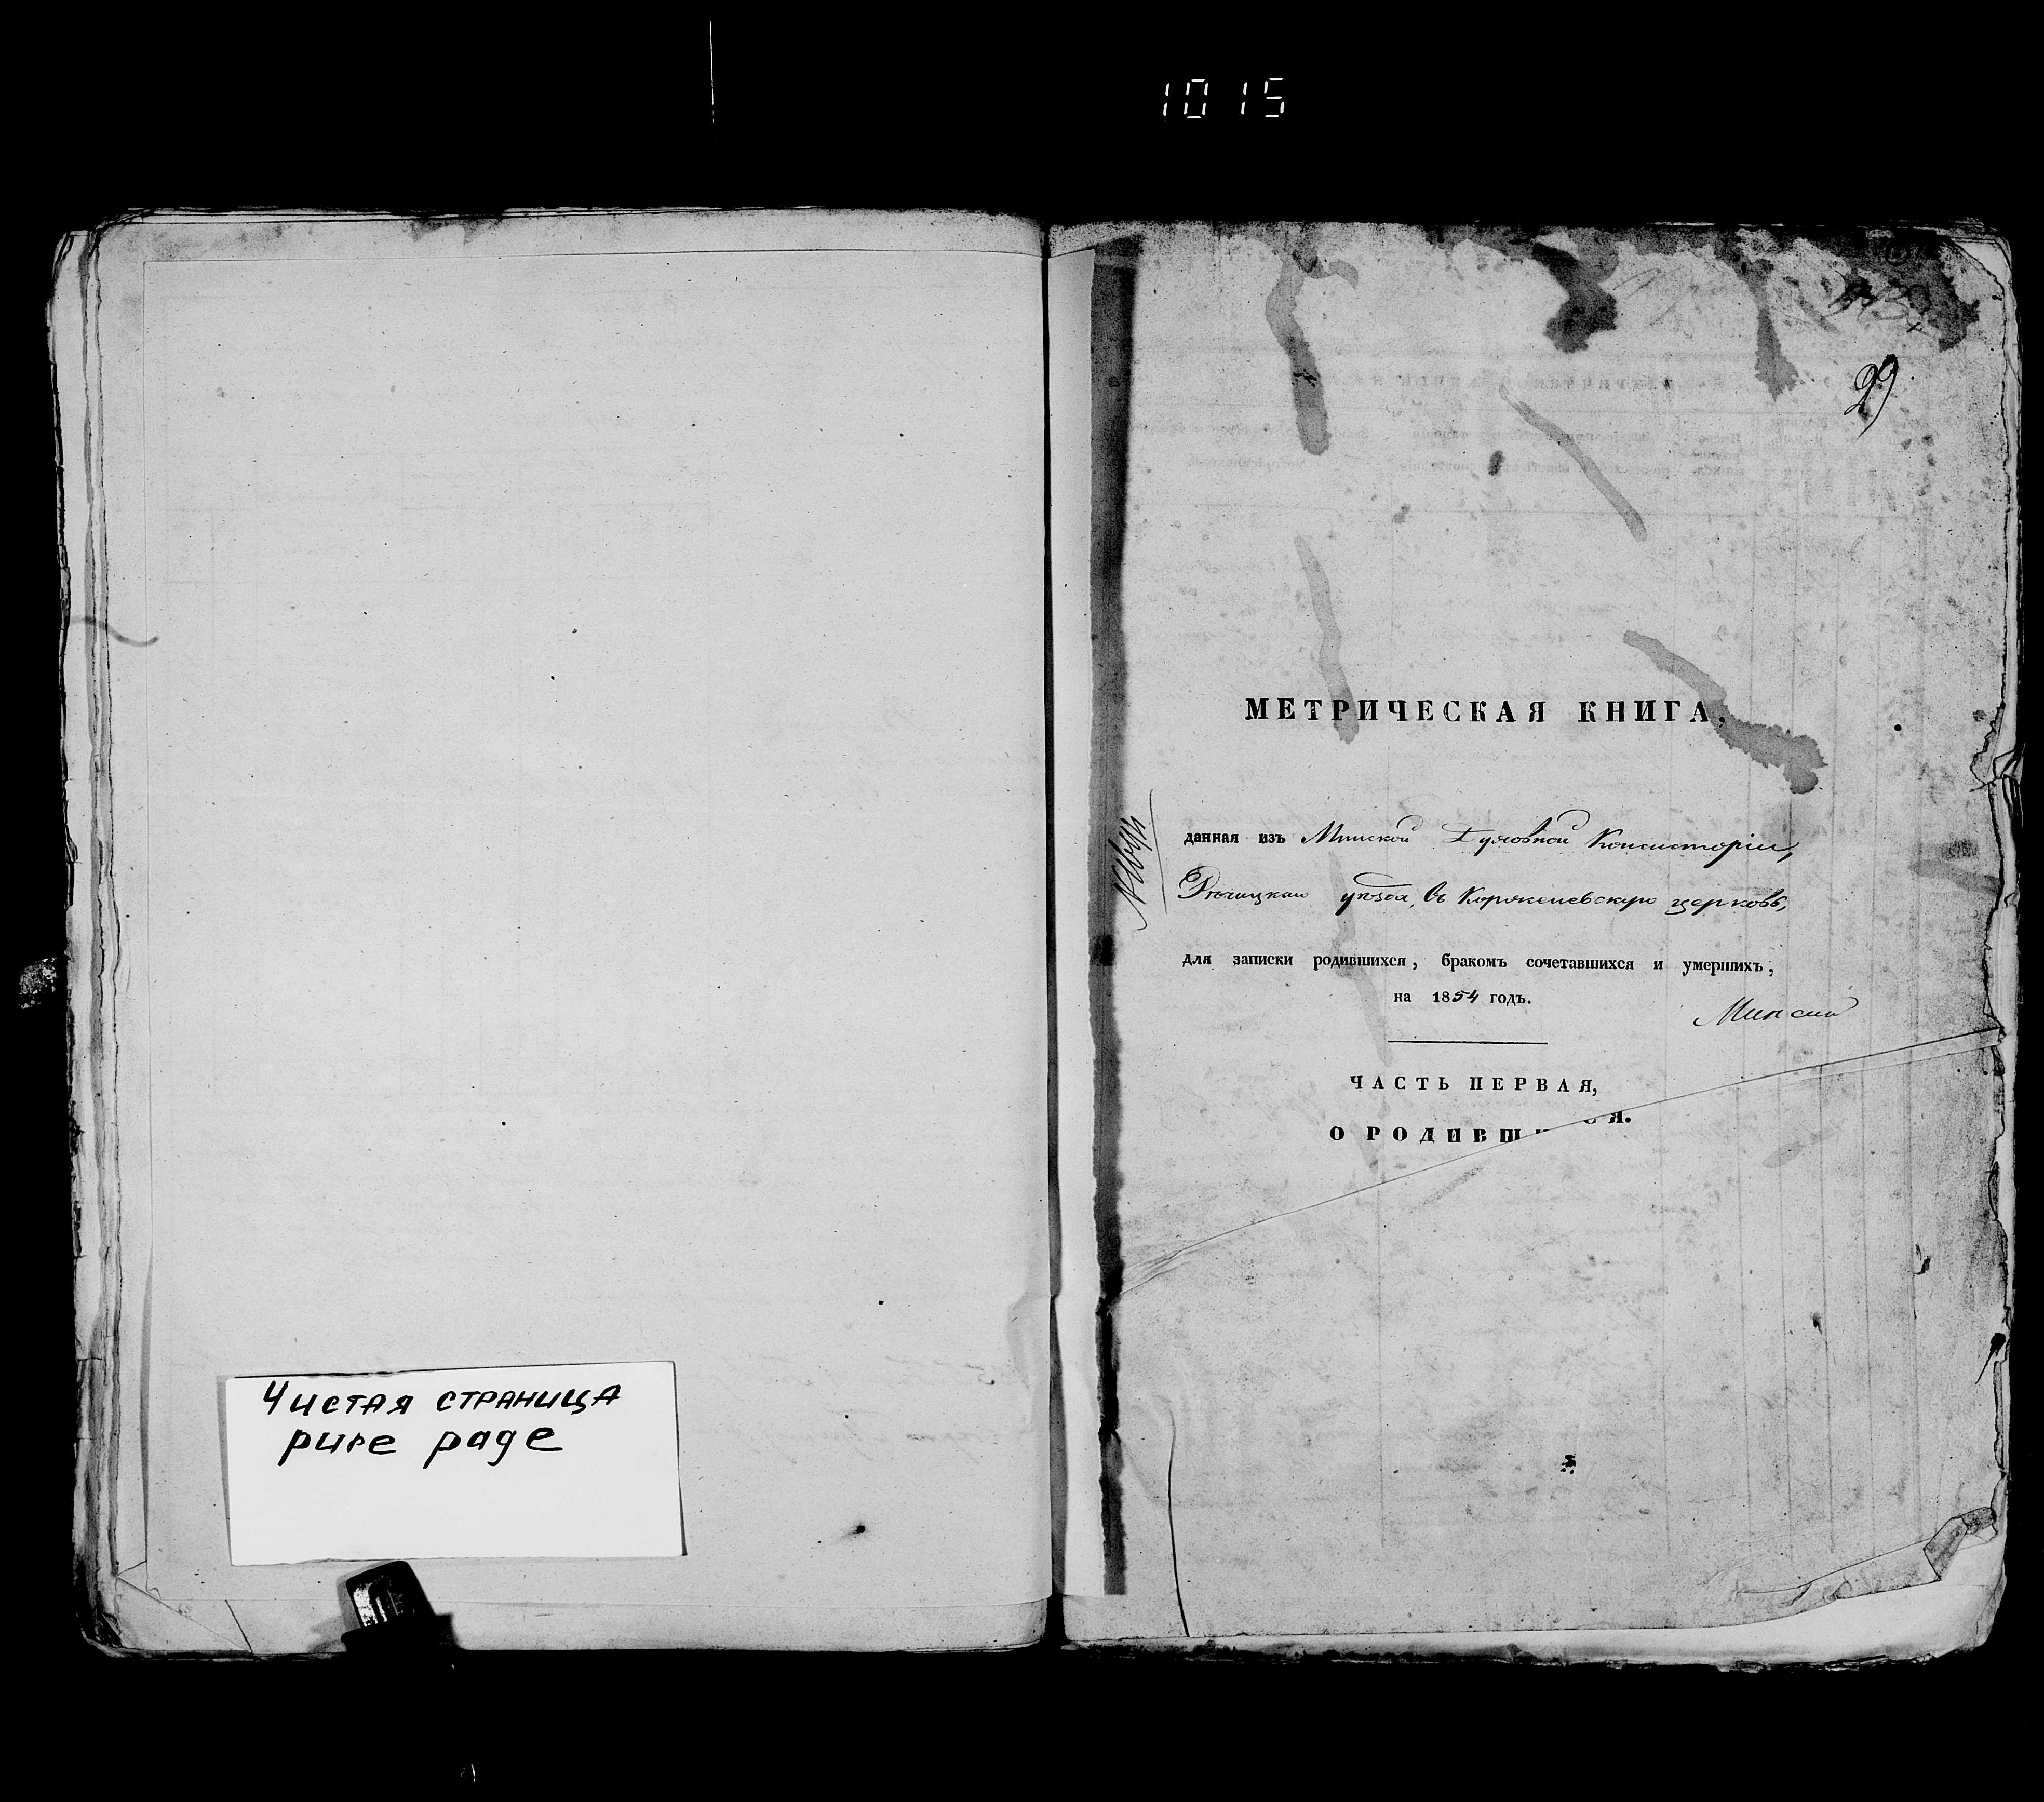 1015
Чистая страница
pure page
29
МЕТРИЧЕСКАЯ КНИГА,
данная изъ Минской Духовной Консисторіи,
Рѣчицкаго уѣзда, въ Кореневскую церковь,
для записки родившихся, бракомъ сочетавшихся и умершихъ,
на 1854 годъ.
ЧАСТЬ ПЕРВАЯ,
О РОДИВШ СЯ.